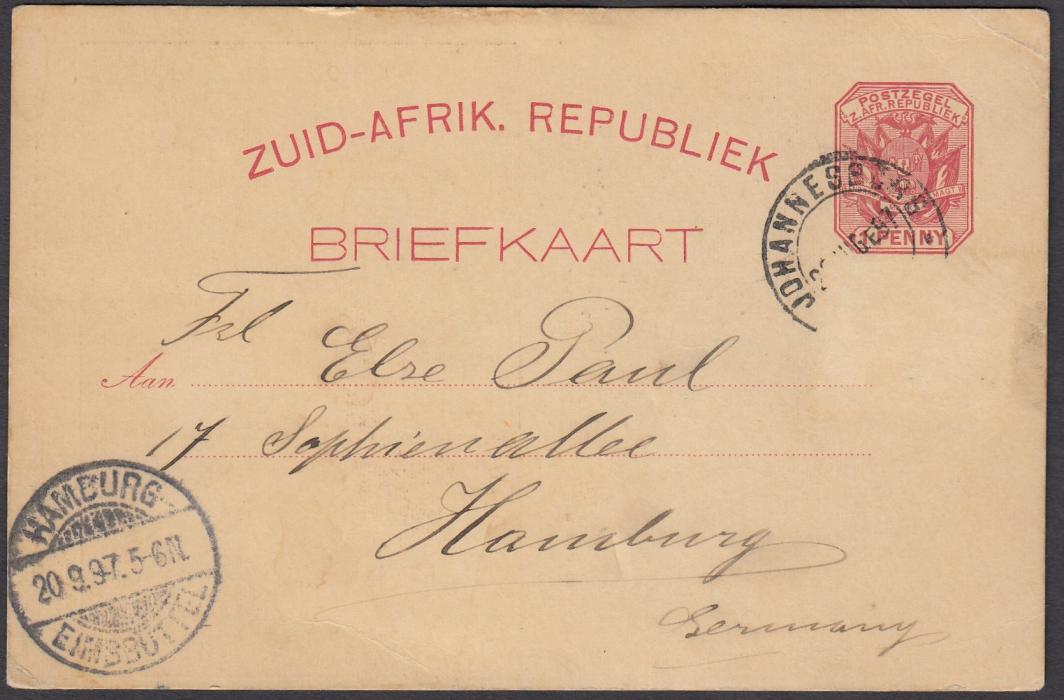 POSTZEGEL
Z. AFR. REPUBLIEK
MAGT
1 PENNY
ZUID-AFRIK. REPUBLIEK
JOHANNESBURG
BRIEFKAART
Frl
Aan Else Paul
17 Sophienallee
Hamburg
Germany
HAMBURG
20.9.97. 5-6N.
EIMSBÜTTEL